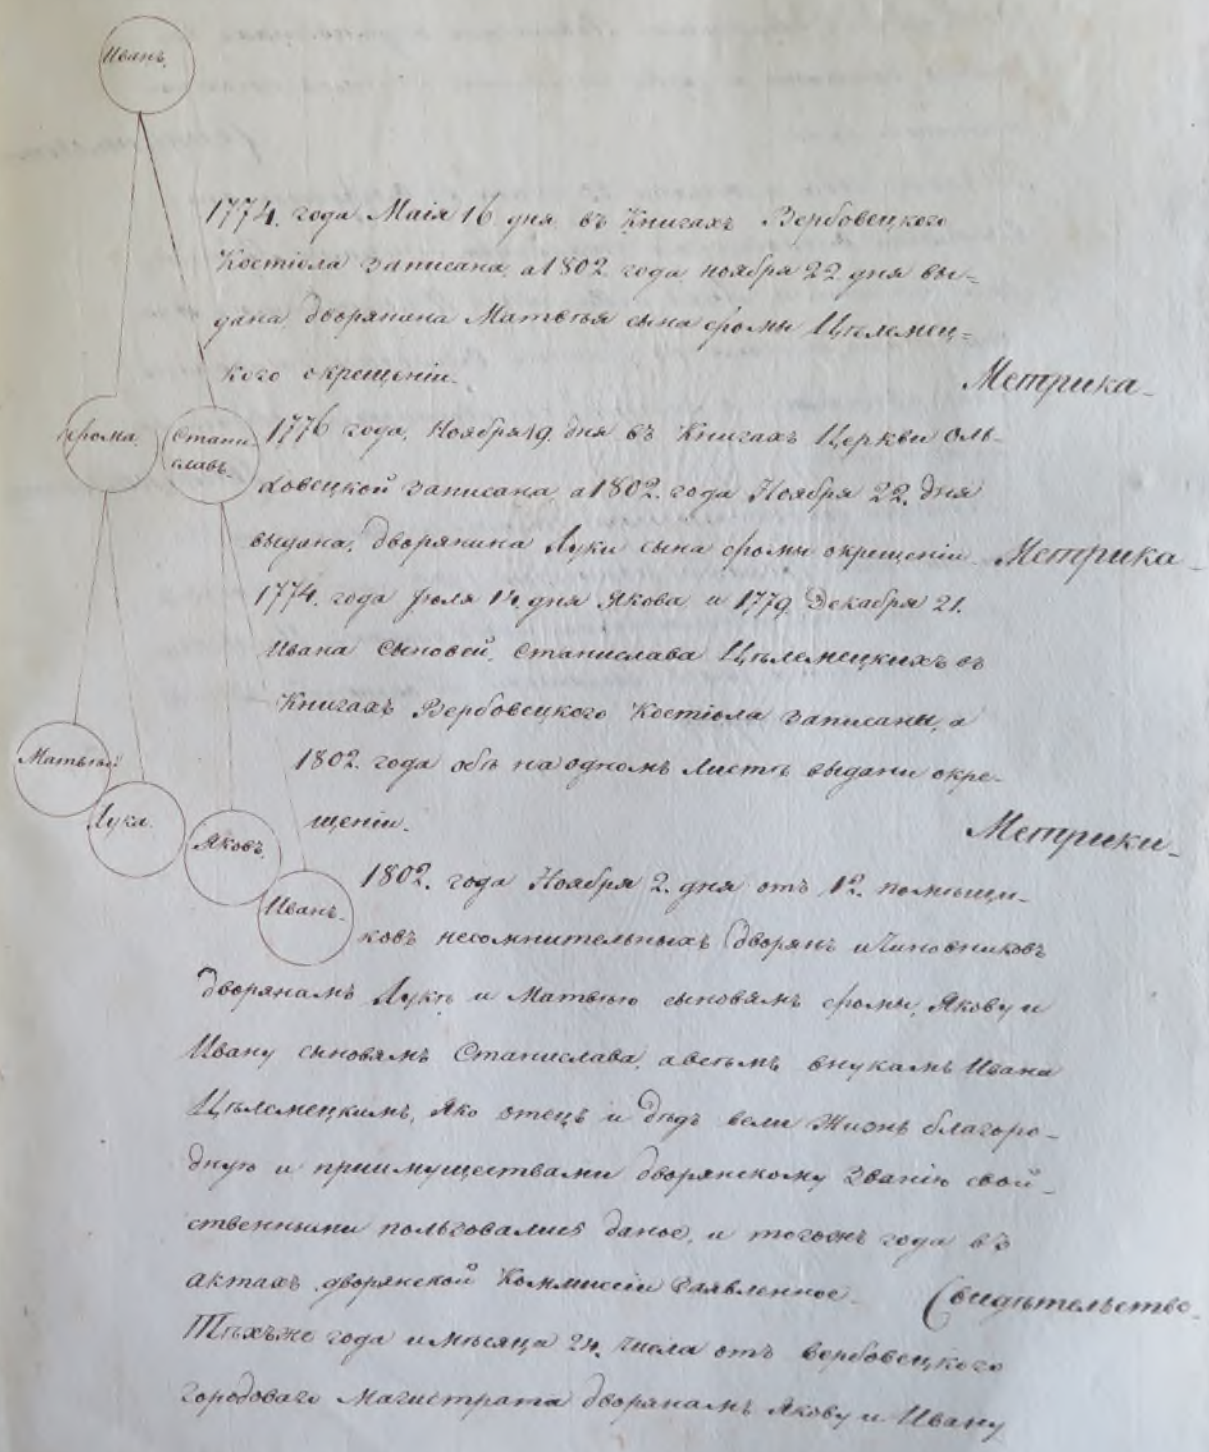 Иванъ.
1774. года Маія 16 дня въ Книгахъ Вербовецкого
Костіола записана, а 1802. года ноября 22 дня вы=
дана, дворянина Матвѣя сына Ѳомы Цѣлемец=
кого окрещеніи.
Метрика
Ѳома.
Стани-
славъ.
1776 года, Ноября 19. дня въ Книгахъ Церкви Оль-
ховецкой записана, а 1802. года Ноября 22. дня
выдана, дворянина Луки сына Ѳомы окрещеніи
Метрика
1774. года Іюля 14. дня Якова и 1779. Декабря 21.
Ивана сыновей, Станислава Цѣлемецкихъ въ
Книгахъ Вербовецкого Костіола записаны, а
1802. года обѣ на одномъ листѣ выдани окре-
щеніи.
Метрики
Матвѣй
Лука.
Яковъ.
Иванъ.
1802. года Ноября 2. дня отъ 12. помѣщи-
ковъ несомнительныхъ дворянъ и Чиновниковъ
дворянамъ Лукѣ и Матвѣю сыновямъ Ѳомы, Якову и
Ивану сыновямъ Станислава, а всѣмъ внукамъ Ивана
Цѣлемецкимъ, яко отецъ и дѣдъ вели жизнь благоро-
дную и приимуществами дворянскому званію свой-
ственными пользовались даное, и тогожъ года въ
актахъ дворянской Коммиссіи заявленное
Свидѣтельство
Тѣхъже года и мѣсяца 24. числа отъ вербовецкого
городоваго Магистрата дворянамъ Якову и Ивану